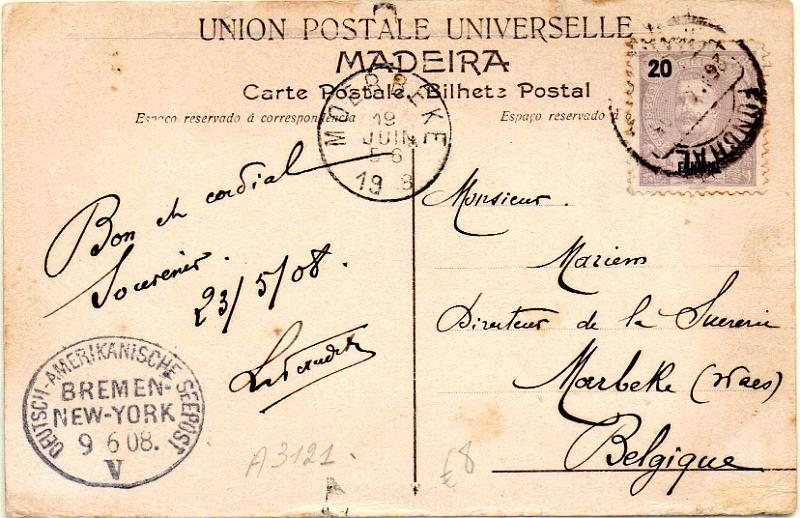 UNION POSTALE UNIVERSELLE
MADEIRA
Carte Postale. Bilhete Postal
Espaço reservado á correspondencia
Espaço reservado á
20
FUNCHAL
FUNCHAL
MOERBEKE
19
JUIN
5-6
19 8
Bon et cordial
Souvenir.
23/5/08.
Monsieur.
Mariens
Directeur de la Sucrerie
Marbeke (Waes)
Belgique
DEUTSCH-AMERIKANISCHE SEEPOST
BREMEN-
NEW-YORK
9 6 08.
V
A3121.
£8